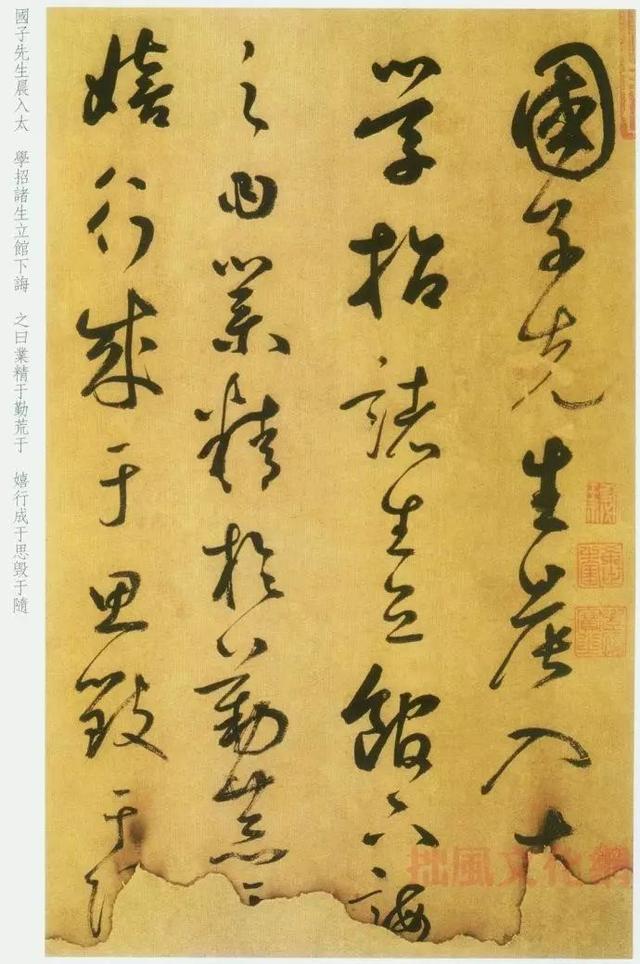 國子先生晨入太
學招諸生立館下誨
之曰業精於勤荒于
嬉行成于思毀于
國子先生晨入太 學招諸生立館下誨 之曰業精于勤荒于 嬉行成于思毀于隨
拙風文化網